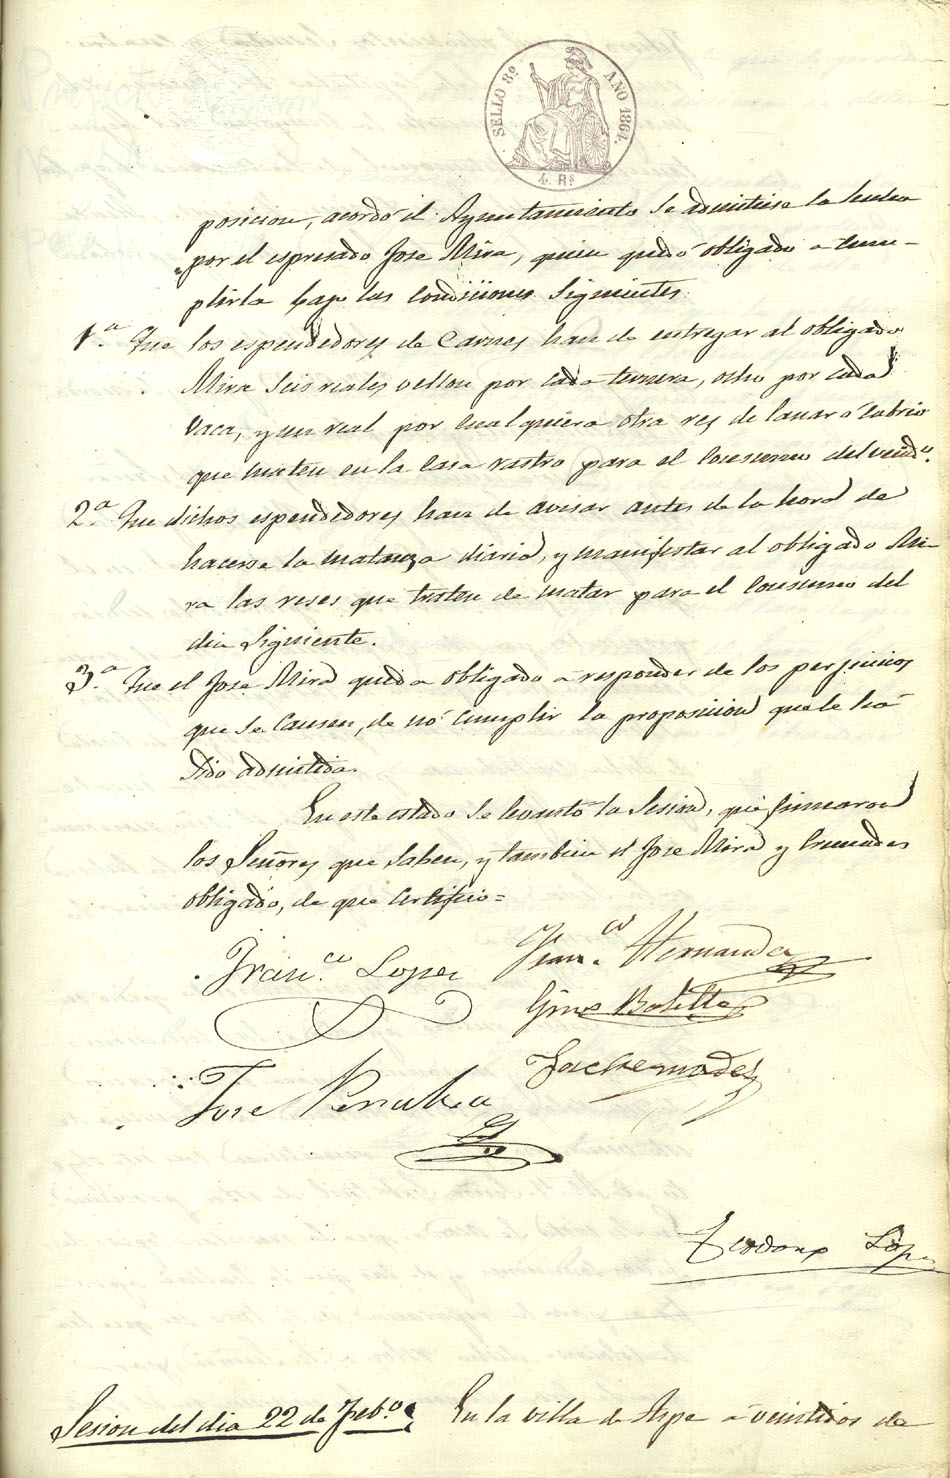 SELLO 8º AÑO 1864.
4. Rs
posicion, acordó el Ayuntamiento se admitiese la hecha
por el espresado Jose Mira, quien quedó obligado a cum-
plirla bajo las condiciones siguientes.
1.ª Que los espendedores de Carnes han de entregar al obligado
Mira seis reales vellon por cada ternera, ocho por cada
vaca, y un real por cualquiera otra res de lanar ó cabrio
que maten en la Casa rastro para el consumo del vecind.º
2.ª Que dichos espendedores han de avisar antes de la hora de
hacerse la matanza diaria, y manifestar al obligado Mi-
ra las reses que traten de matar para el consumo del
dia siguiente.
3.ª Que el Jose Mira queda obligado á responder de los perjuicios
que se causen, de nó cumplir la proposicion que le há
sido admitida.
En este estado se levantó la Sesion, que firmaron
los Señores que saben, y tambien el Jose Mira y
obligado, de que certifico=
Fran.co Lopez Fran.co Hernandez
Gines Botella
Jose
Teodoro Lopez
Sesion del dia 22 de Feb.º En la villa de Aspe á veintidos de